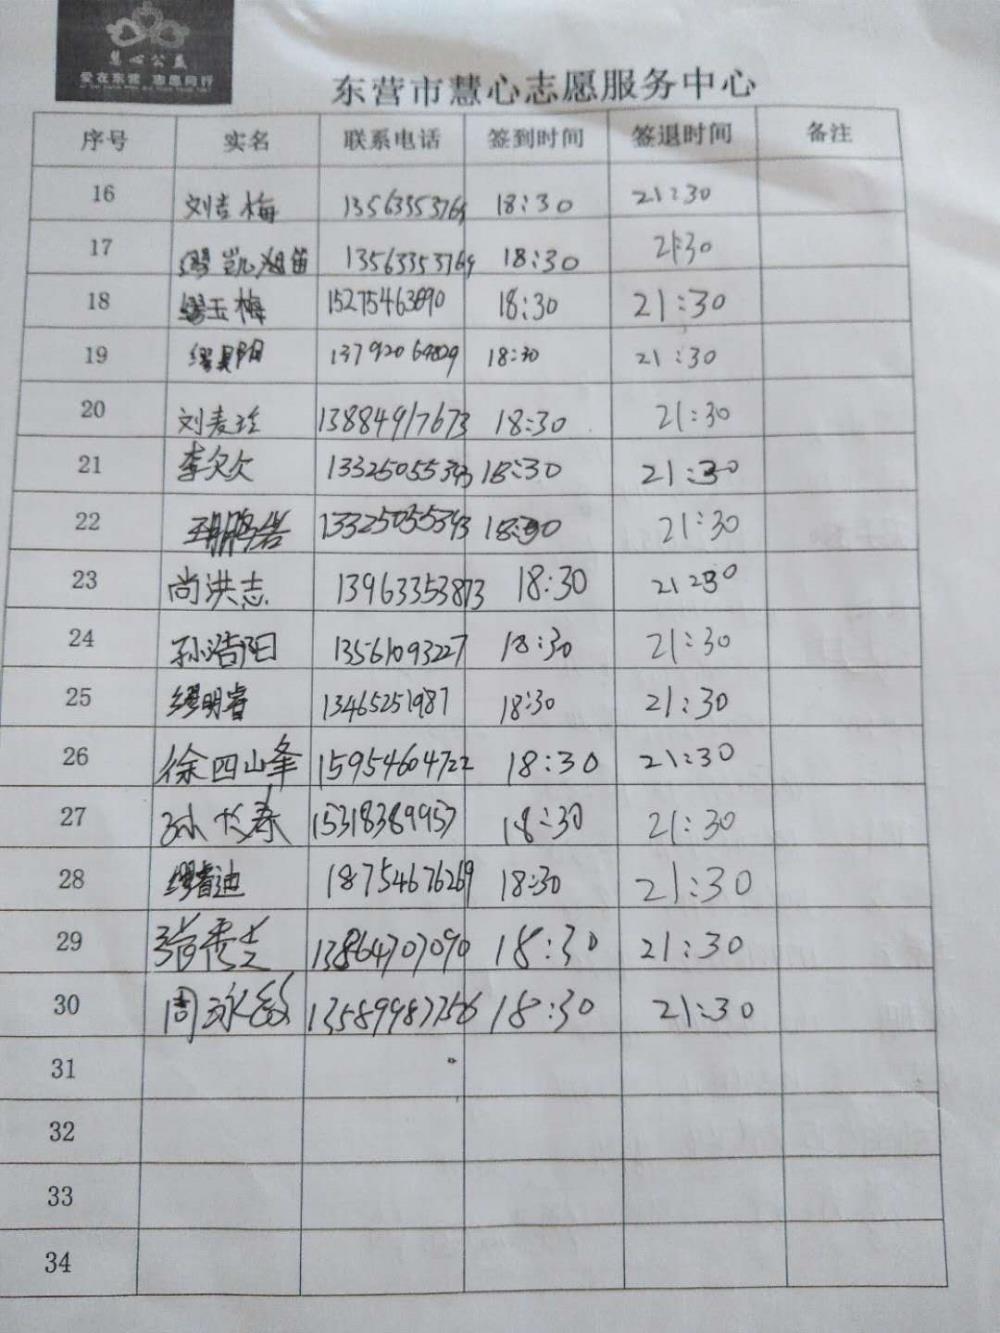 慧心公益
爱在东营 志愿同行
东营市慧心志愿服务中心
序号 实名 联系电话 签到时间 签退时间 备注
16 刘吉梅 13563353769 18:30 21:30
17 13563353769 18:30 21:30
18 缪玉梅 15275463890 18:30 21:30
19 缪昊阳 13792069829 18:30 21:30
20 刘麦玲 13884917673 18:30 21:30
21 李欠欠 13325055393 18:30 21:30
22 13325055393 18:30 21:30
23 尚洪志 13963353873 18:30 21:30
24 孙浩阳 13561093227 18:30 21:30
25 缪明睿 13465251987 18:30 21:30
26 徐四山峰 15954604722 18:30 21:30
27 孙长春 15318389957 18:30 21:30
28 缪睿迪 18754676269 18:30 21:30
29 13864707090 18:30 21:30
30 周咏敏 13589987756 18:30 21:30
31
32
33
34